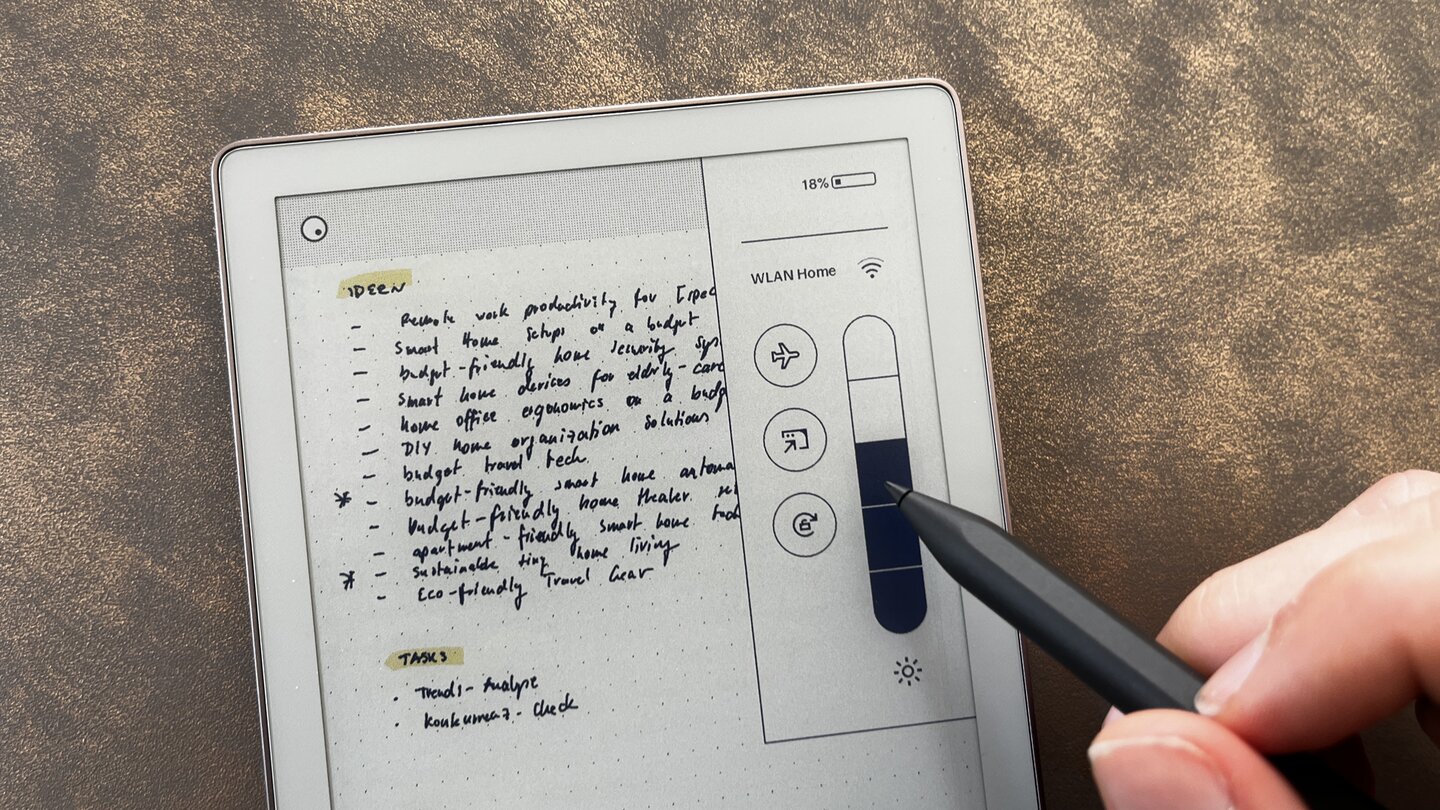 18%
WLAN Home
IDEEN
- Remote work productivity for
- Smart Home Setups on a budget
- budget-friendly home security sys
- Smart home devices for elderly-care
- home office ergonomics on a budg
- DIY home organization solutions
- budget travel tech
* - budget-friendly smart home automa
- budget-friendly home theater
- apartment-friendly smart home tech
* - sustainable tiny home living
- Eco-friendly Travel Gear
TASKS
· Trends-Analyse
· Konkurrenz-Check